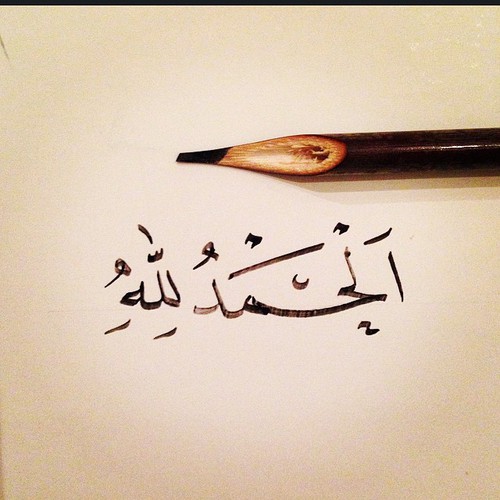 اَلْحَمْدُ لِلّٰهِ